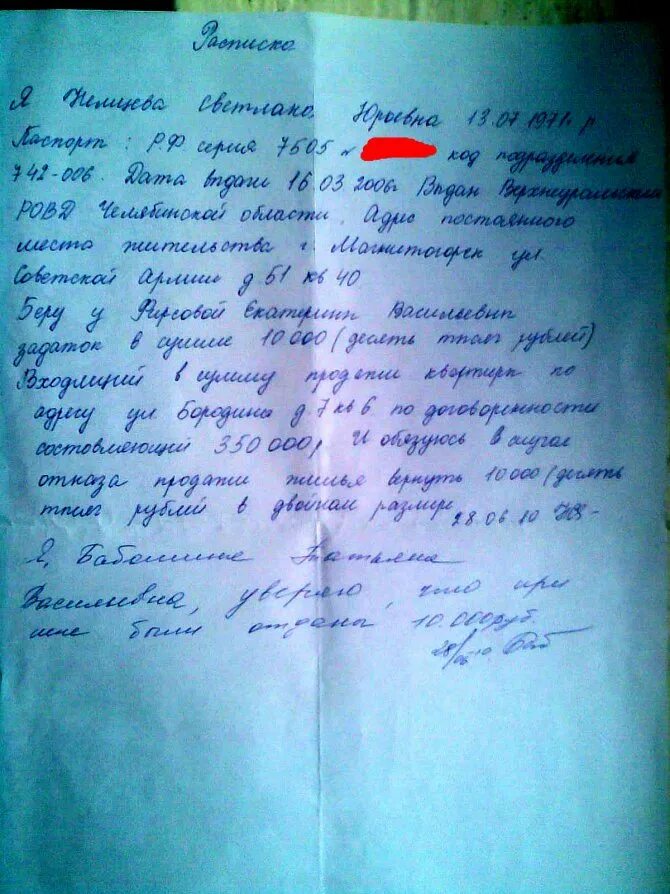 Расписка
Я Светлана Юрьевна 13.07.1971г р
Паспорт: Р.Ф. серия 7505 № код подразделения
742-006. Дата выдачи 16.03.2006г Выдан Верхнеуральским
РОВД Челябинской области. Адрес постоянного
места жительства г. Магнитогорск ул.
Советской Армии д 51 кв 40
Беру у Фирсовой Екатерины Васильевны
задаток в сумме 10 000 (десять тысяч рублей)
Входящий в сумму продажи квартиры по
адресу ул Бородина д. 7 кв 6. по договоренности
состовляющей 350 000р. И обязуюсь в случае
отказа продажи жилья вернуть 10 000 (десять
тысяч рублей в двойном размере
28.06.10
Я, Татьяна
Васильевна, уверяю, что при
мне были отданы 10.000руб.
28/06-10